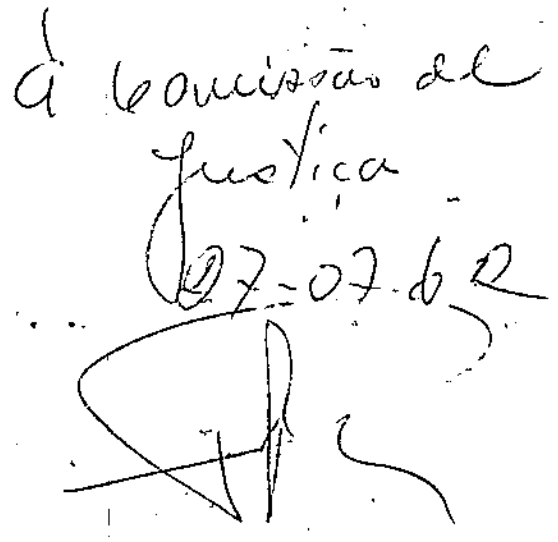 À Comissão de
Justiça
27-07-62